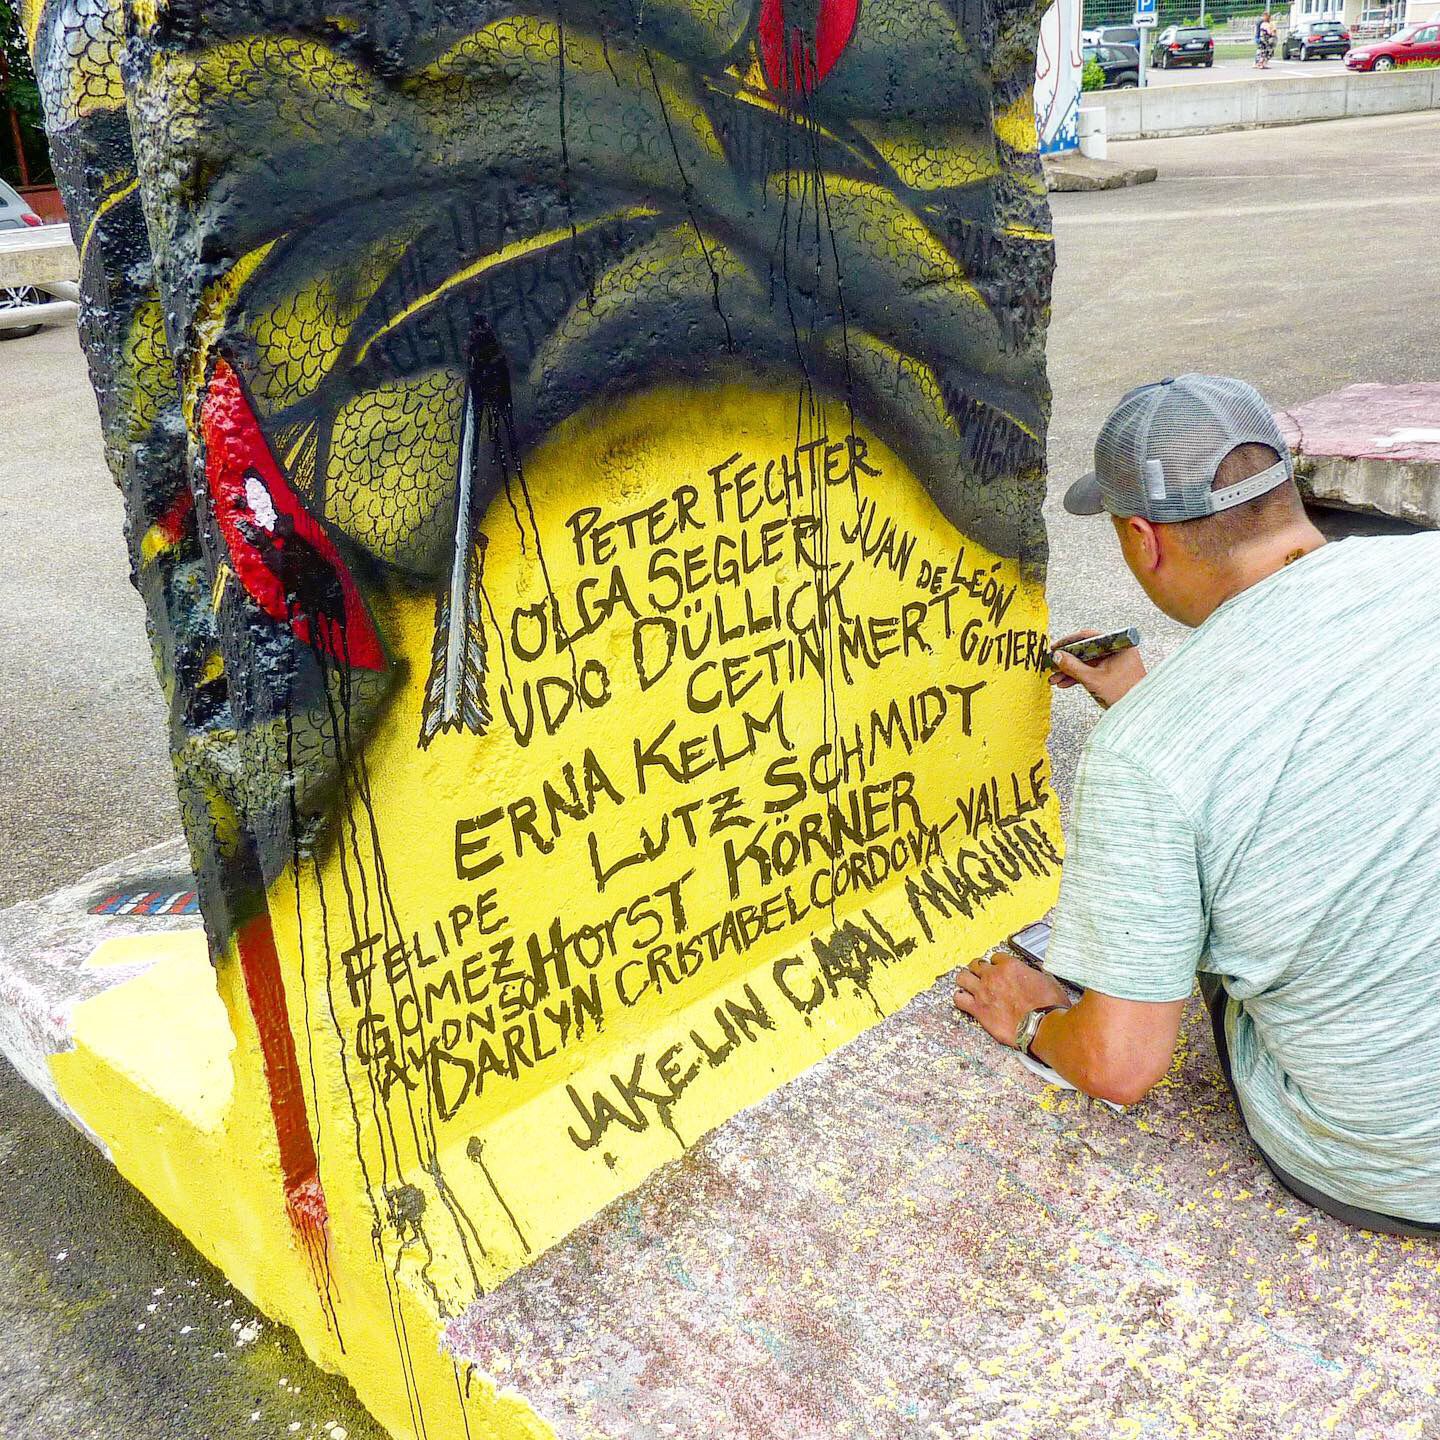 PETER FECHTER
OLGA SEGLER
JUAN DE LEÓN
GUTIERR
UDO DÜLLICK
CETIN MERT
ERNA KELM
LUTZ SCHMIDT
HORST KÖRNER
FELIPE
GOMEZ
AYONSO
DARLYN CRISTABEL CORDOVA-VALLE
JAKELIN CAAL MAQUIN
P